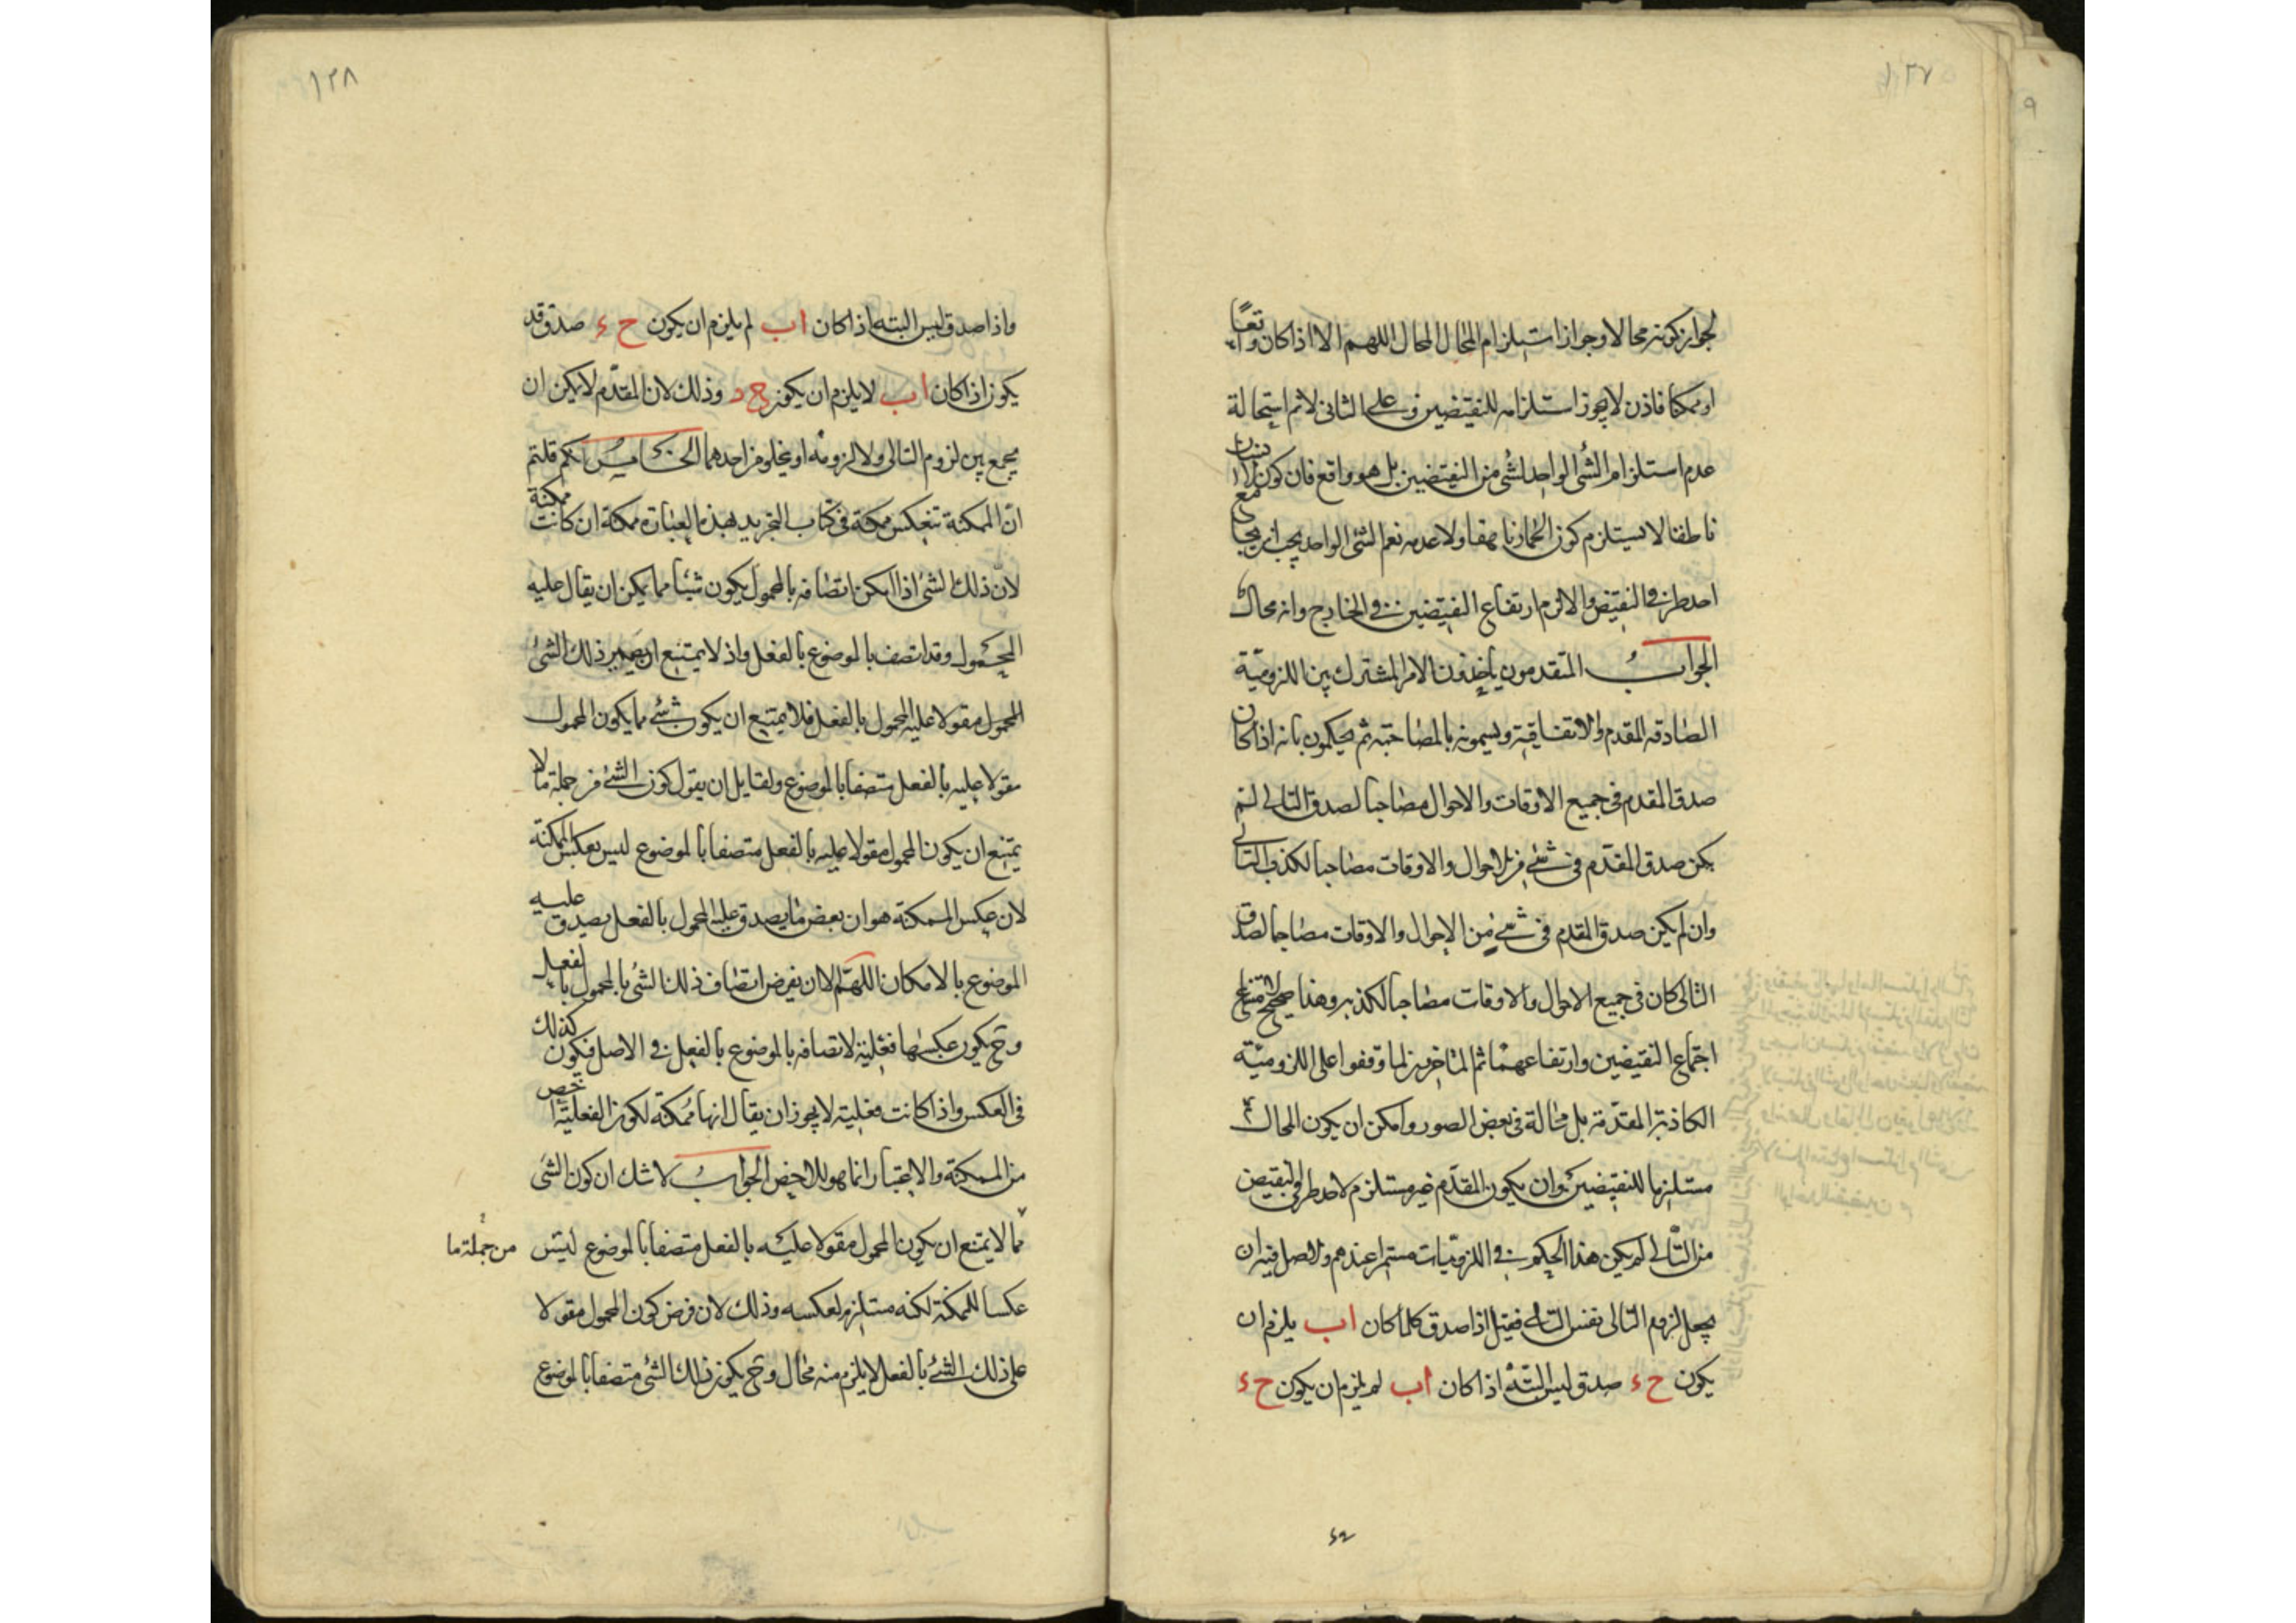 ١٢٧
لجواز كونه محالا وجواز استلزام المحال المحال اللهم الا اذا كان واقعا
او ممكنا فاذن لا يجوز استلزامه للنقيضين وعلى الثانى لا ثم استحالة
عدم استلزام الشئ الواحد لشئ من النقيضين بل هو واقع فان كون الانسان
ناطقا لا يستلزم كون الحمار ناهقا ولا عدمه نعم الشئ الواحد يجب ان يجامع
احد طرفى النقيض والا لزم ارتفاع النقيضين فى الخارج وانه محال
الجواب المتقدمون ياخذون الامر المشترك بين اللزومية
الصادقه المقدم والاتفاقية ويسمونه بالمصاحبة ثم يحكمون بانه اذا كان
صدق المقدم فى جميع الاوقات والاحوال مصاحبا لصدق التالى لم
يكن صدق المقدم فى شئ من الاحوال والاوقات مصاحبا لكذب التالى
وان لم يكن صدق المقدم فى شئ من الاحوال والاوقات مصاحبا لصدق
التالى كان فى جميع الاحوال والاوقات مصاحبا لكذبه وهذا صحيح لامتناع
اجتماع النقيضين وارتفاعهما ثم المتاخرين لما وقفوا على اللزومية
الكاذبة المقدمة بل محالة فى بعض الصور وامكن ان يكون المحال
مستلزما للنقيضين وان يكون المقدم غير مستلزم لاحد طرفى النقيض
من التالى لم يكن هذا الحكم فى اللزوميات مستمرا عندهم والاصل فيه ان
يجعل لزوم التالى نفس التالى فقيل اذا صدق كلما كان ا ب يلزم ان
يكون ح ء صدق ليس البتة اذا كان ا ب لم يلزم ان يكون ح ء
١٢٨
واذا صدق ليس البته اذا كان ا ب لم يلزم ان يكون ح ء صدق قد
يكون اذا كان ا ب لا يلزم ان يكون ح د وذلك لان المقدم لا يكن ان
يجمع بين لزوم التالى ولا لزومه او يخلو من احدهما الخامس انكم قلتم
ان الممكنة تنعكس ممكنة فى كتاب التجريد بهذه العبارة ممكنة ان كانت ممكنة
لان ذلك الشئ اذا امكن اتصافه بالمحمول يكون شيئا مما يمكن ان يقال عليه
المحمول وقد اتصف بالموضوع بالفعل واذ لا يمتنع ان يصير ذلك الشئ
المحمول مقولا عليه المحمول بالفعل فلا يمتنع ان يكون شئ مما يكون المحمول
مقولا عليه بالفعل متصفا بالموضوع ولقايل ان يقول كون الشئ من جملة ما لا
يمتنع ان يكون المحمول مقولا عليه بالفعل متصفا بالموضوع ليس بعكس الممكنة
لان عكس الممكنة هو ان بعض ما يصدق عليه المحمول بالفعل يصدق عليه
الموضوع بالامكان اللهم الا ان يفرض اتصاف ذلك الشئ بالمحمول بالفعل
وح يكون عكسها فعلية لاتصافه بالموضوع بالفعل فى الاصل فيكون كذلك
فى العكس واذا كانت فعلية لا يجوز ان يقال انها ممكنة لكون الفعلية اخص
من الممكنة والاعتبار انما هو للاخص الجواب لا شك ان كون الشئ
مما لا يمتنع ان يكون المحمول مقولا عليه بالفعل متصفا بالموضوع ليس
من جملة ما
عكسا للممكنة لكنه مستلزم لعكسه وذلك لان فرض كون المحمول مقولا
على ذلك الشئ بالفعل لا يلزم منه محال وح يكون ذلك الشئ متصفا بالموضوع